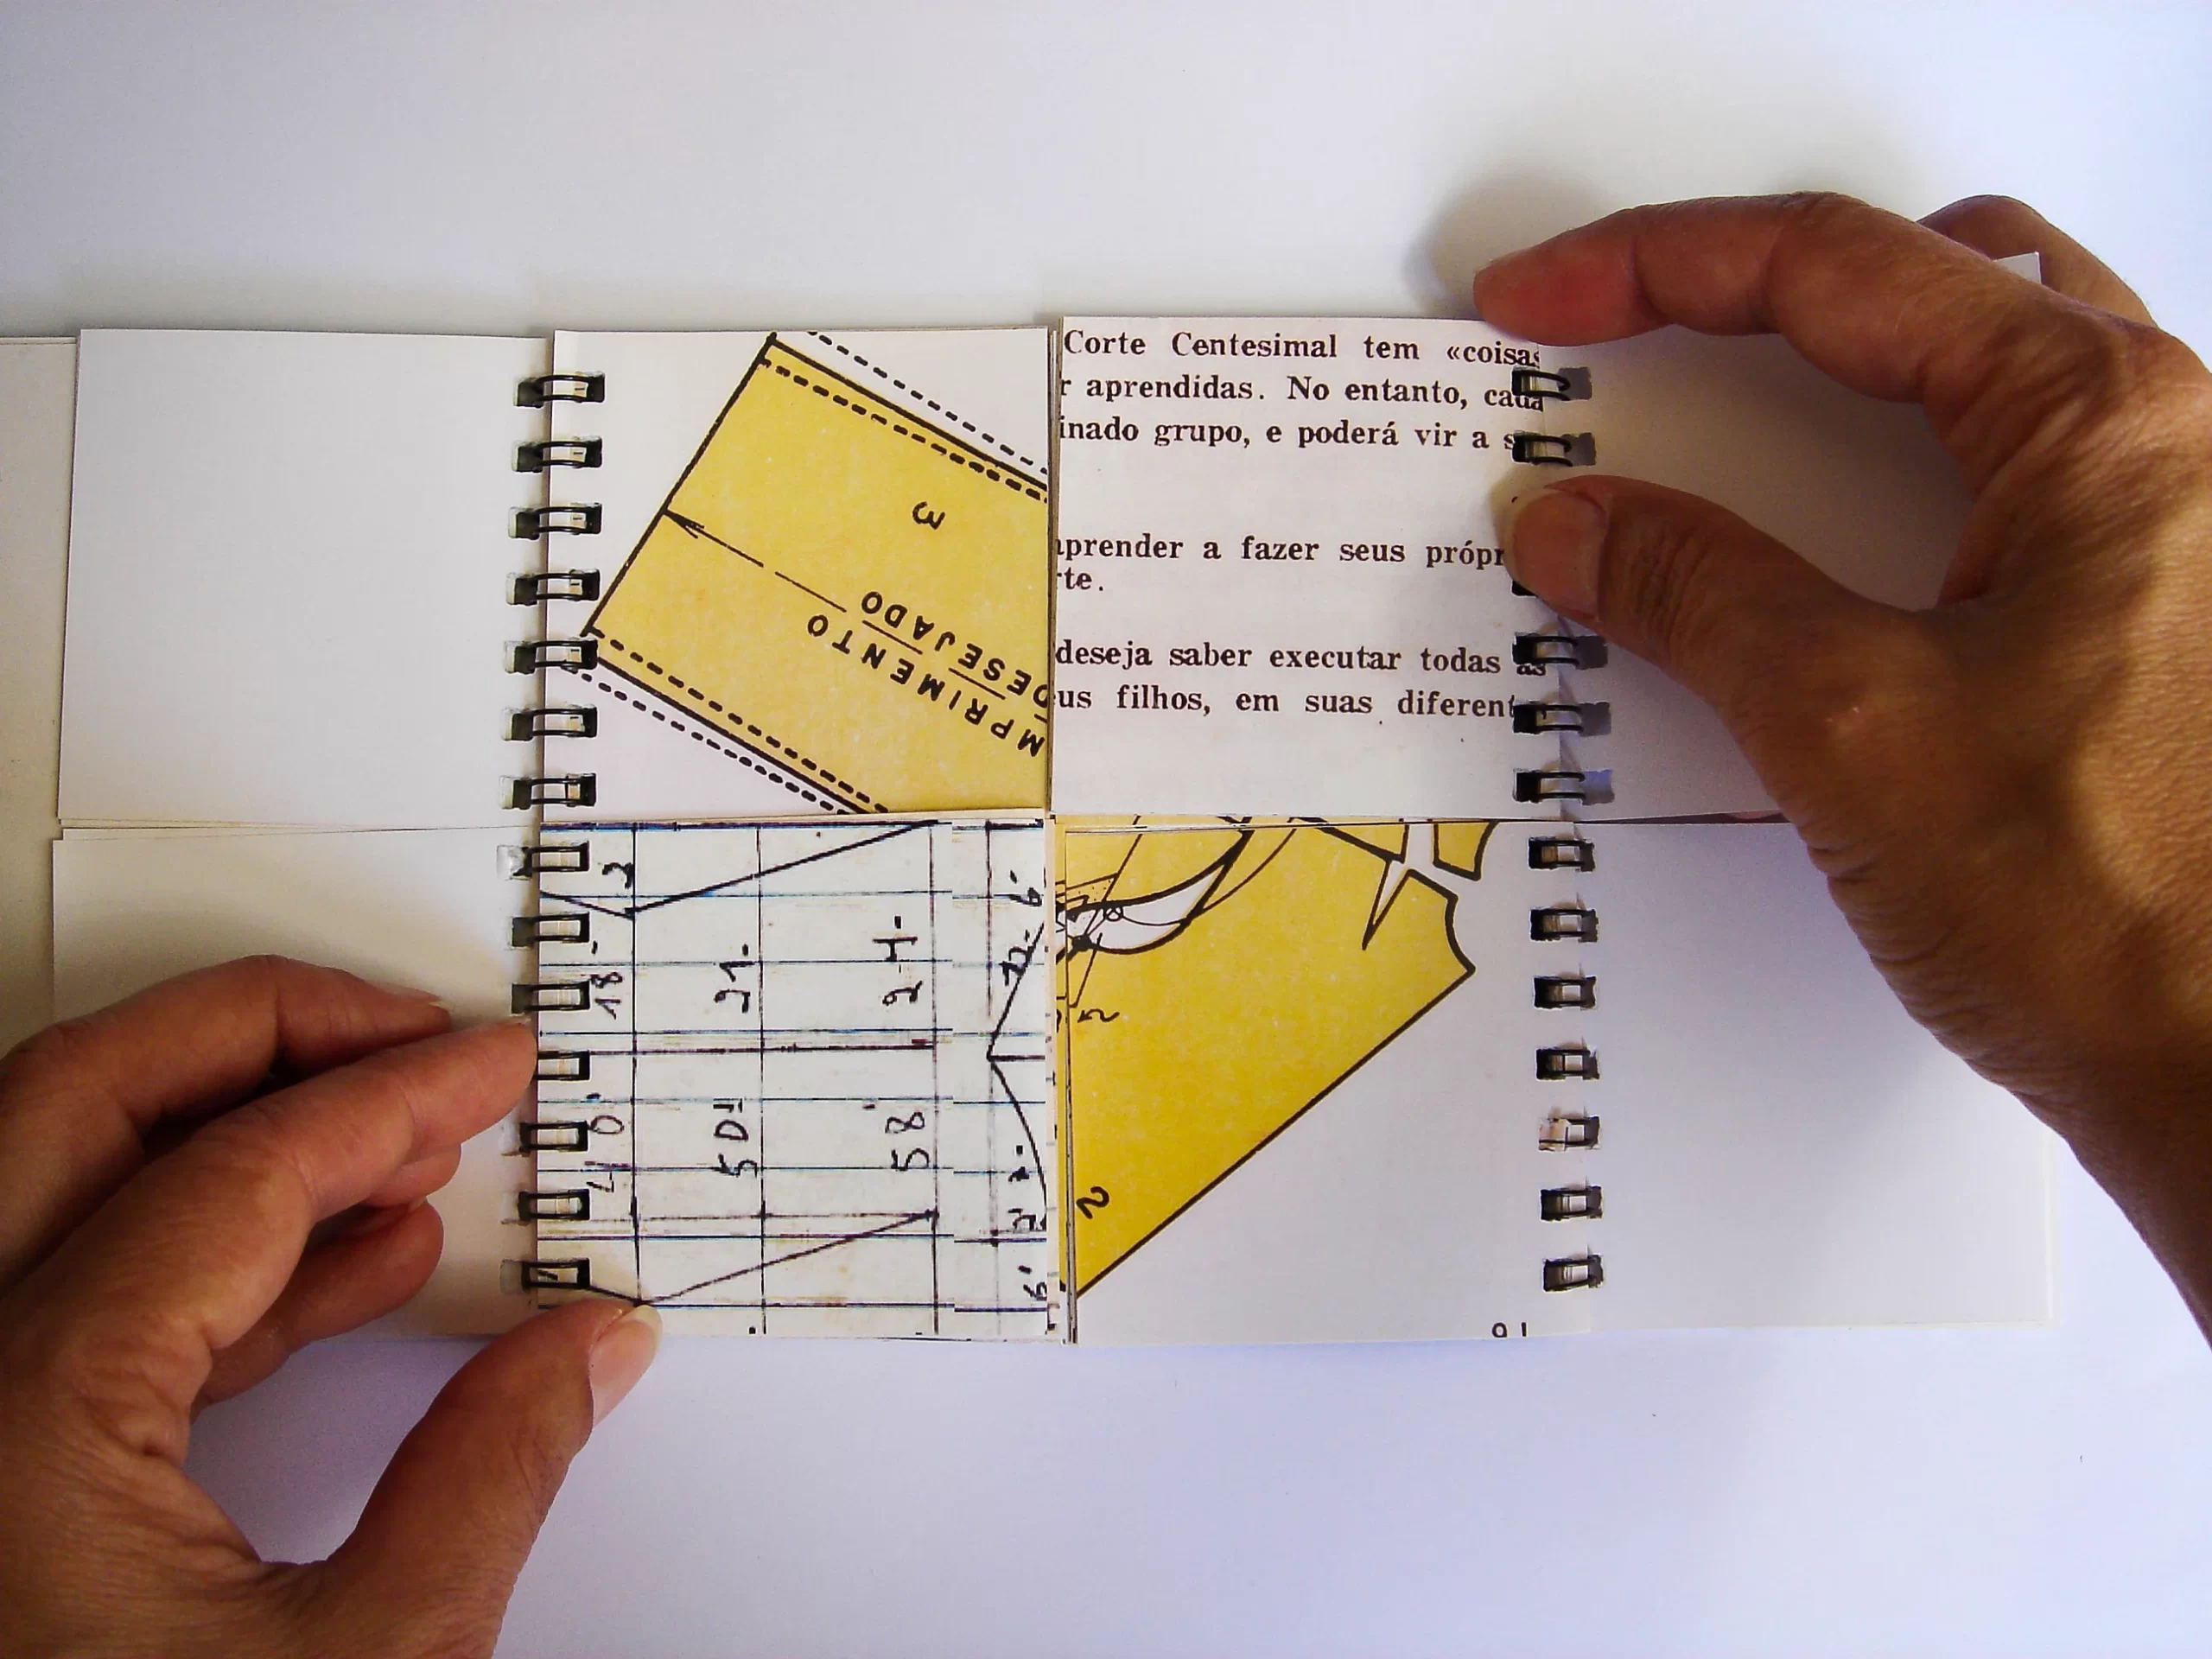 3
MPRIMENTO
DESEJADO
Corte Centesimal tem «coisas
r aprendidas. No entanto, cada
inado grupo, e poderá vir a s
aprender a fazer seus própr
rte.
deseja saber executar todas as
us filhos, em suas diferent
3
18-
21-
2-4-
6'
12-
40'
50'
58'
6'
2
2